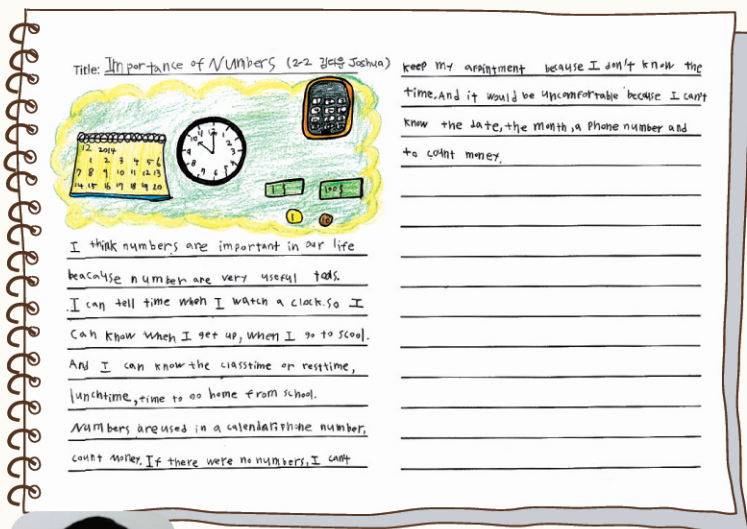 Title: Importance of Numbers (2-2 김다운 Joshua)
12 2014
1 2 3 4 5 6
7 8 9 10 11 12 13
14 15 16 17 18 19 20
12 1 2 3 4 5 6 7 8 9 10 11
1$
100$
1
10
I think numbers are important in our life
beacause number are very useful tools.
I can tell time when I watch a clock. so I
can know when I get up, when I go to scool.
And I can know the classtime or resttime,
lunchtime, time to go home from school.
Numbers are used in a calendar, phone number,
count money. If there were no numbers, I can't
keep my apointment because I don't know the
time. And it would be uncomfortable because I can't
know the date, the month, a phone number and
to count money.